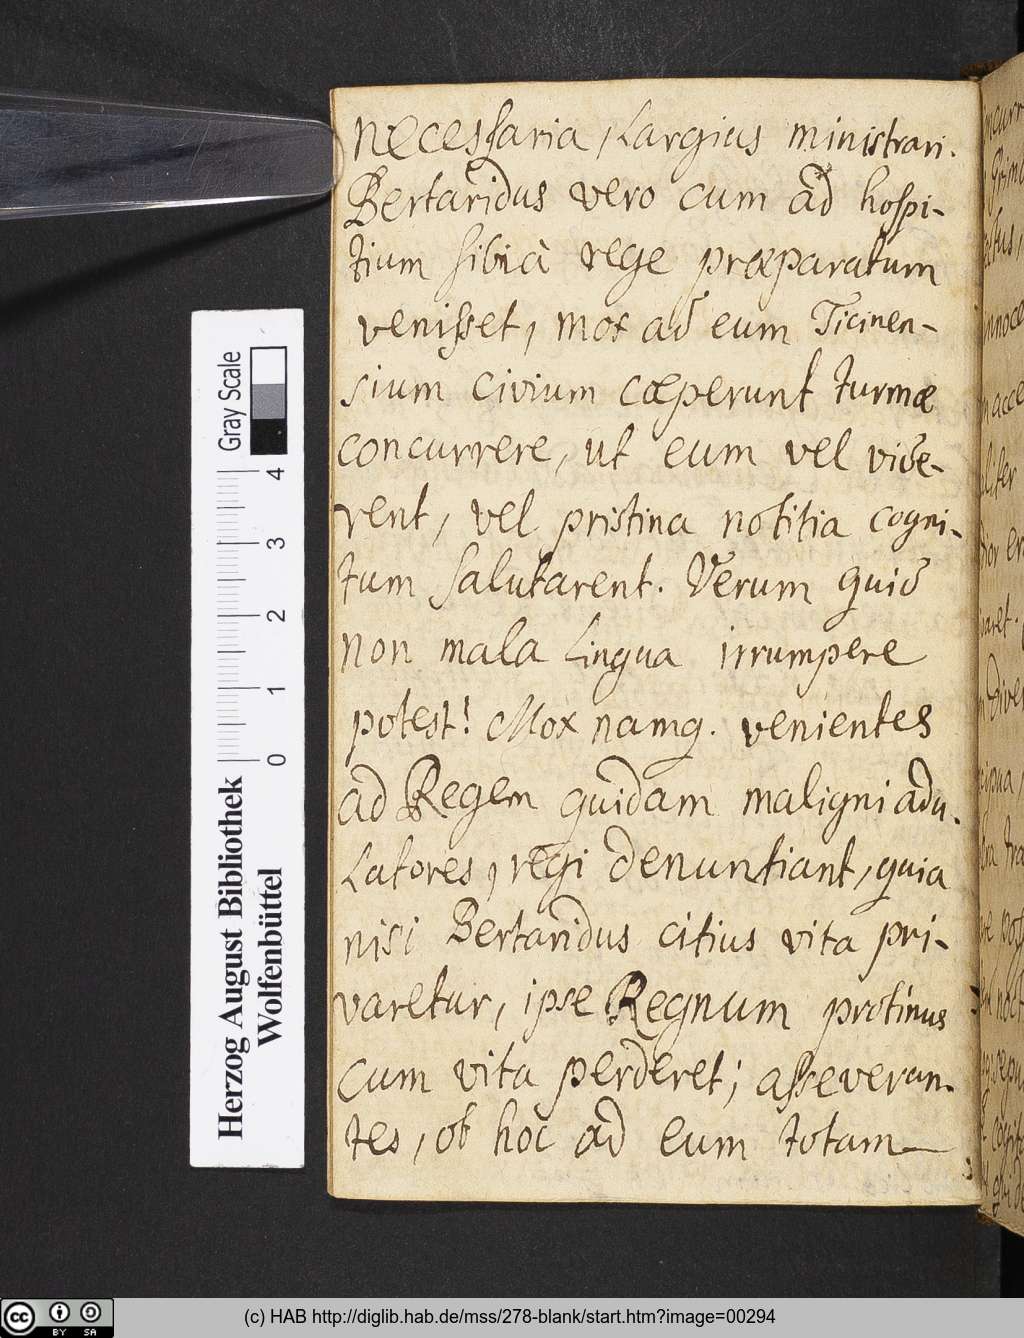 necessaria, largius ministrari.
Bertaridus vero cum ad hospi-
tium sibi à rege præparatum
venisset, mox ad eum Ticinen-
sium civium cœperunt turmæ
concurrere, ut eum vel vide-
rent, vel pristina notitia cogni-
tum salutarent. Verum quid
non mala lingua irrumpere
potest! Mox namq. venientes
ad Regem quidam maligni adu-
latores, regi denuntiant, quia
nisi Bertaridus citius vita pri-
varetur, ipse Regnum protinus
cum vita perderet; asseveran-
tes, ob hoc ad eum totam
Gray Scale
4 3 2 1 0
Herzog August Bibliothek
Wolfenbüttel
cc BY SA
(c) HAB http://diglib.hab.de/mss/278-blank/start.htm?image=00294